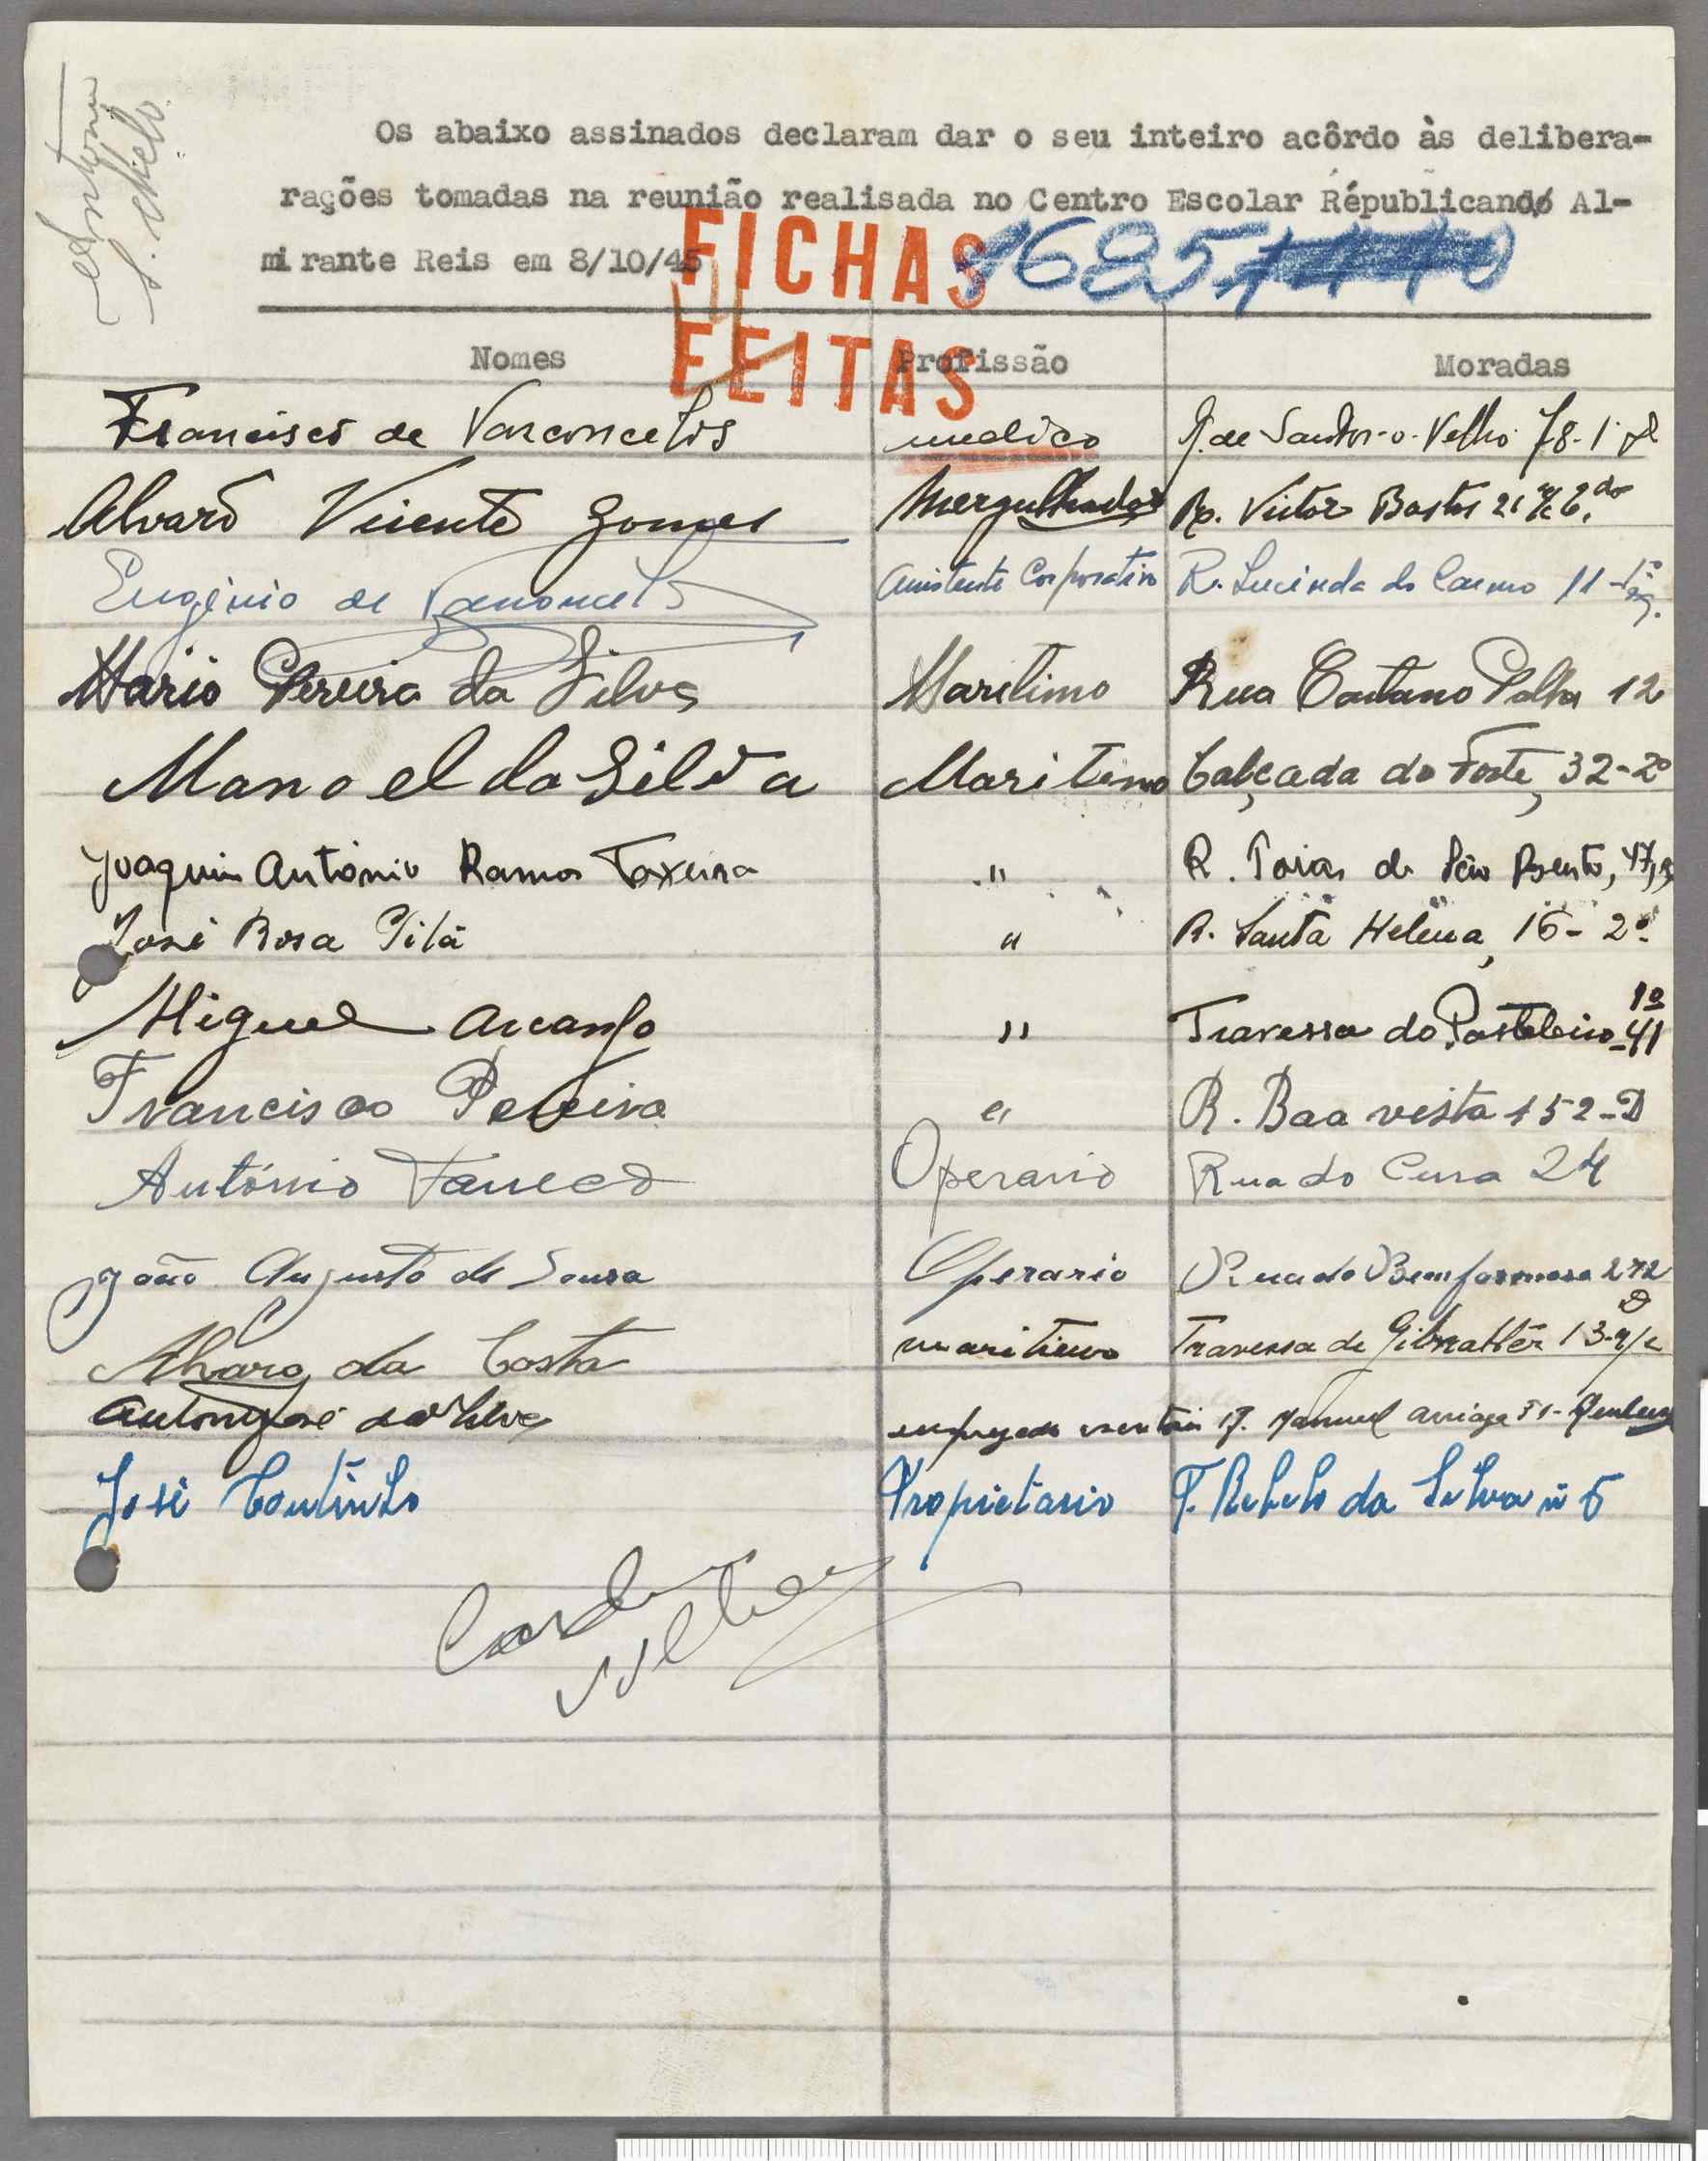 António
S. Melo.
Os abaixo assinados declaram dar o seu inteiro acôrdo às delibera-
rações tomadas na reunião realisada no Centro Escolar Républicano Al-
mirante Reis em 8/10/45
FICHAS
FEITAS
1685
Nomes Profissão Moradas
Francisco de Vasconcelos medico R. de Santos-o-Velho 78-1º
Alvaro Vicente Gomes Mergulhador R. Victor Bastos 21
Eugénio de Vasconcelos Assistente Corporativo R. Lucinda do Carmo 11-1º
Mario Pereira da Silva Maritimo Rua Caetano Palha 12
Manoel da Silva Maritimo Calçada do Forte, 32-2º
Joaquim António Ramos Teixeira " R. Poiais de São Bento, 47,
José Rosa Pilá " R. Santa Helena, 16-2º
Miguel Arcanjo " Travessa do Pasteleiro-41 1º
Francisco Pereira " R. Boa vista 152-D
António Operario Rua do Cura 24
João Augusto de Sousa Operario Rua do Bemformoso 272
Alvaro da Costa maritimo Travessa de Gibraltér 13-r/c D
Antonio José da Silva empregado Manuel Arriaga
José Coutinho Proprietario T. Rebelo da Silva nº 5